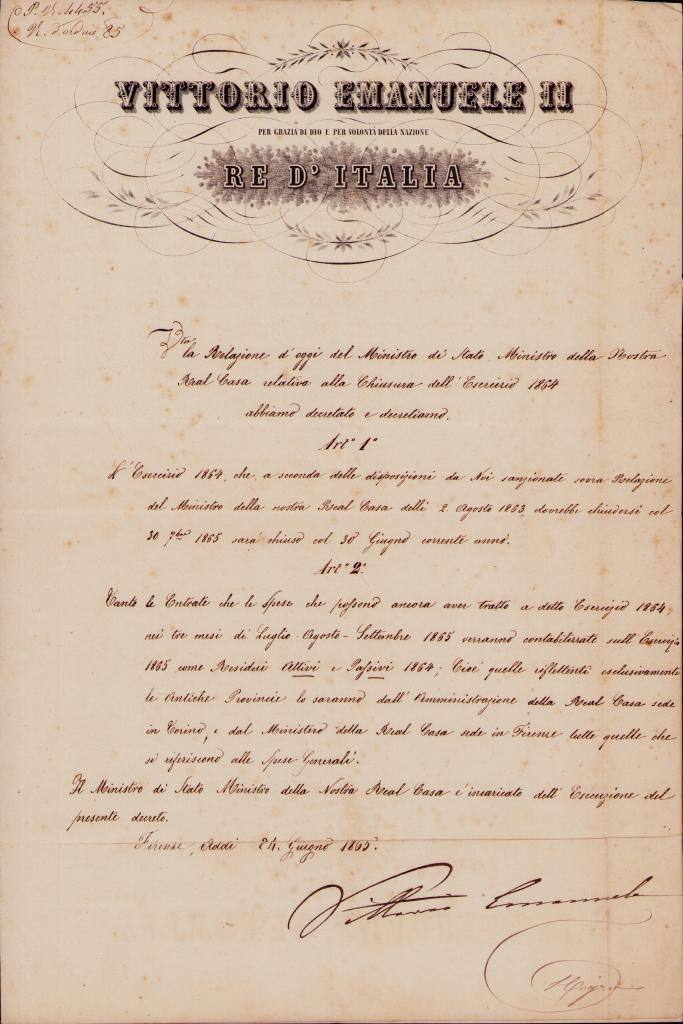 N. d'ordine 85
VITTORIO EMANUELE II
PER GRAZIA DI DIO E PER VOLONTÀ DELLA NAZIONE
RE D' ITALIA
Vista
la Relazione d'oggi del Ministro di Stato Ministro della Nostra
Real Casa relativa alla Chiusura dell'Esercizio 1864
abbiamo decretato e decretiamo.
Art.º 1º
L'Esercizio 1864, che, a seconda delle disposizioni da Noi sanzionate sovra Relazione
del Ministro della nostra Real Casa delli 2 Agosto 1863, dovrebbe chiudersi col
30 7bre 1865 sarà chiuso col 30 Giugno corrente anno.
Art.º 2º
Tanto le Entrate che le Spese che possono ancora aver tratto a detto Esercizio 1864,
nei tre mesi di Luglio-Agosto-Settembre 1865 verranno contabilizzate sull'Esercizio
1865 come Residui Attivi e Passivi 1864; Cioè quelle riflettenti esclusivamente
le Antiche Provincie lo saranno dall'Amministrazione della Real Casa sede
in Torino, e dal Ministero della Real Casa sede in Firenze tutte quelle che
si riferiscono alle Spese Generali.
Il Ministro di Stato Ministro della Nostra Real Casa è incaricato dell'Esecuzione del
presente decreto.
Firenze, Addì 24 Giugno 1865.
Vittorio Emanuele